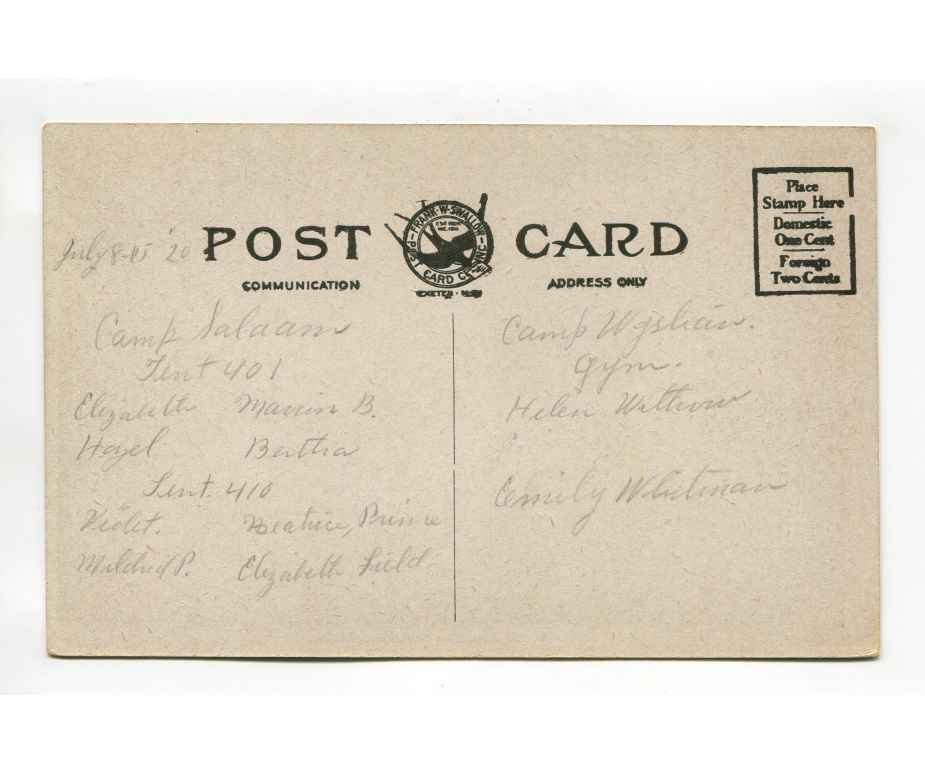 Place
Stamp Here
Domestic
One Cent
Foreign
Two Cents
POST CARD
FRANK·W·SWALLOW
POST CARD CO. INC.
EXETER · N.H.
COMMUNICATION
ADDRESS ONLY
July 8-15 '20
Camp Salaam
Tent 401
Elizabeth Marion B.
Hazel Bertha
Tent. 410
Violet. Beatrice, Prince
Mildred P. Elizabeth Field
Camp
Gym.
Helen
Emily Whitman